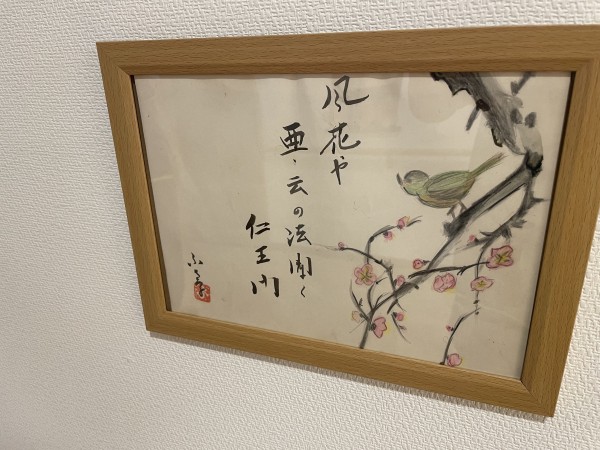 風花や
亜、云の法聞く
仁王門